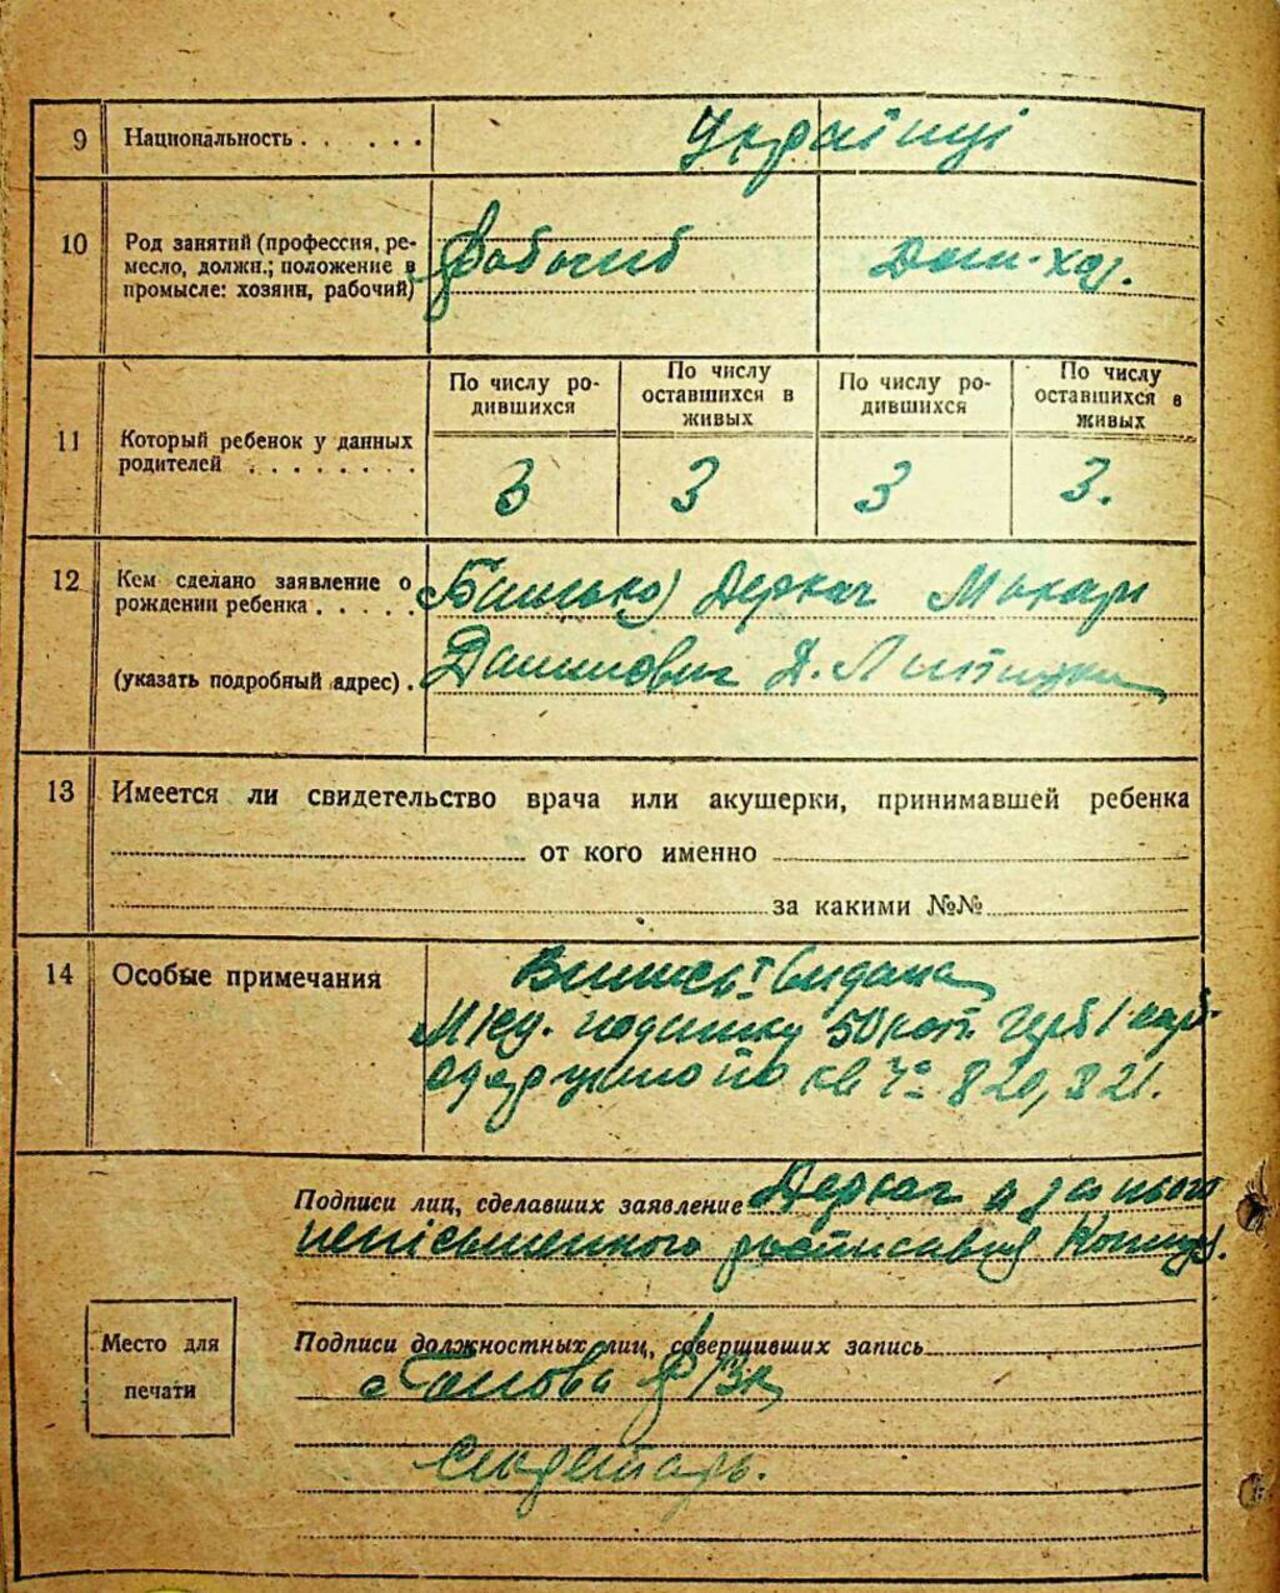 9 Национальность . . . . . . Українці
10 Род занятий (профессия, ре-
месло, должн.; положение в
промысле: хозяин, рабочий) Дом-хоз.
По числу ро-
дившихся
По числу
оставшихся в
живых
По числу ро-
дившихся
По числу
оставшихся в
живых
11 Который ребенок у данных
родителей . . . . . . . .
3 3 3 3.
12 Кем сделано заявление о
рождении ребенка . . . . . (Батько) Деркач Макар
(указать подробный адрес) . Данилович
13 Имеется ли свидетельство врача или акушерки, принимавшей ребенка
от кого именно
за какими №№
14 Особые примечания видана
50 коп. 1 карб.
820, 821.
Подписи лиц, сделавших заявление Деркач а за нього
неписьменного
Место для
печати
Подписи должностных лиц, совершивших запись
Голова
Секретарь.